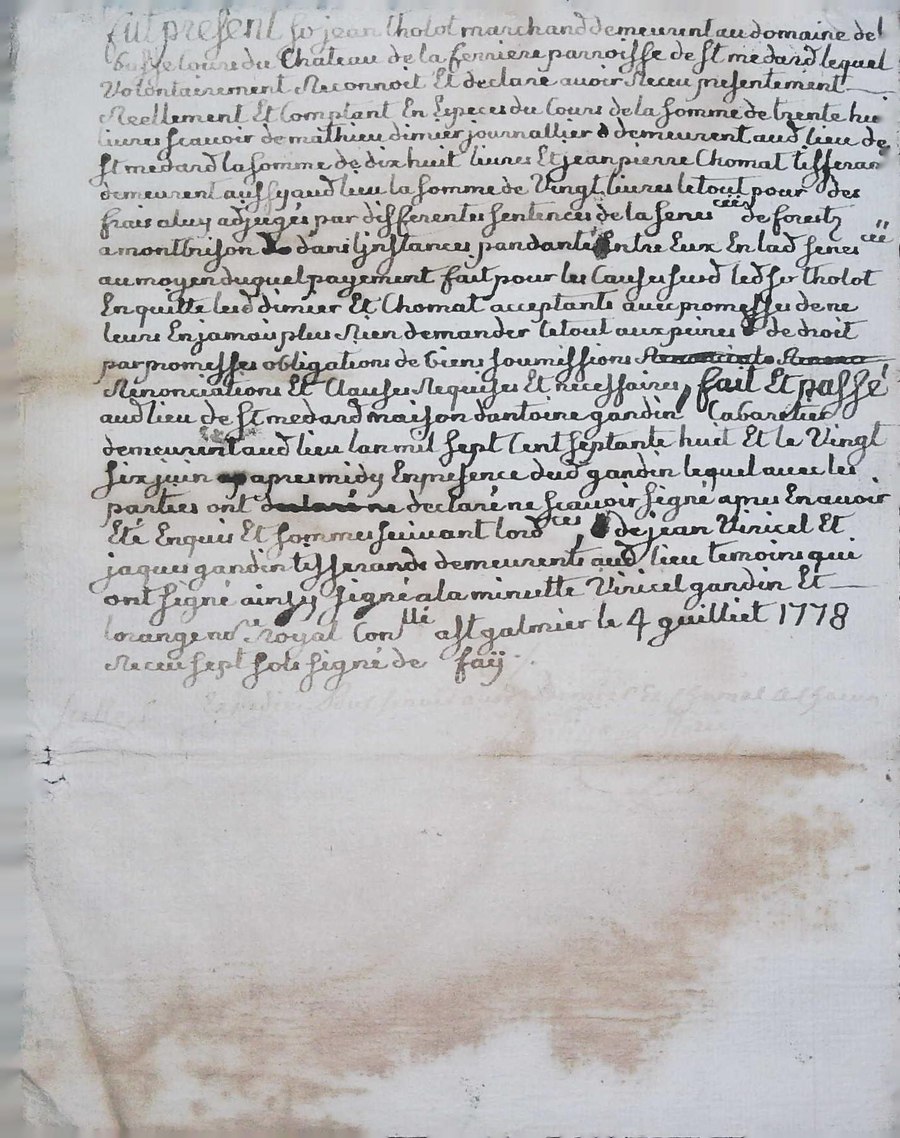 fut present sr jean tholot marchand demeurent au domaine de
basse coure du Chateau de la ferriere parroisse de st medard lequel
Volontairement Reconnoit Et declare avoir Receu presentement
Reellement Et Comptant En Especes du Cours de la somme de trente hu
livres scavoir de mathieu dimier journallier demeurent aud lieu de
st medard la somme de dix huit livres Et jean pierre Chomat tisseran
demeurent aussy aud lieu la somme de Vingt livres le tout pour des
frais a luy adjugés par differentes sentences de la Senes ceés de forestz
a montbrison dans l'instances pandante Entre Eux En lad senes ceé
au moyen duquel payement fait pour les Causes susd led sr tholot
En quitte lesd dimier Et Chomat acceptants avec promesses de ne
leurs En jamais plus Rien demander le tout aux peines de droit
par promesses obligations de biens soumissions
Renonciations Et Clauses Requises Et necessaires, fait Et passé
aud lieu de st medard maison d'antoine gandin Cabaretier
demeurent aud lieu l'an mil sept Cent septante huit Et le Vingt
six juin apres midy En presence dud gandin lequel avec les
parties ont declaré ne scavoir signé apres En avoir
Eté Enquis Et sommes suivant l'ord ces de jean Viricel Et
jaques gandin tisserands demeurents aud lieu temoins qui
ont signé ainsy signé a la minutte Viricel gandin Et
lorange nore Royal Conllé a st galmier le 4 guilliet 1778
Receu sept sols signé de faÿ